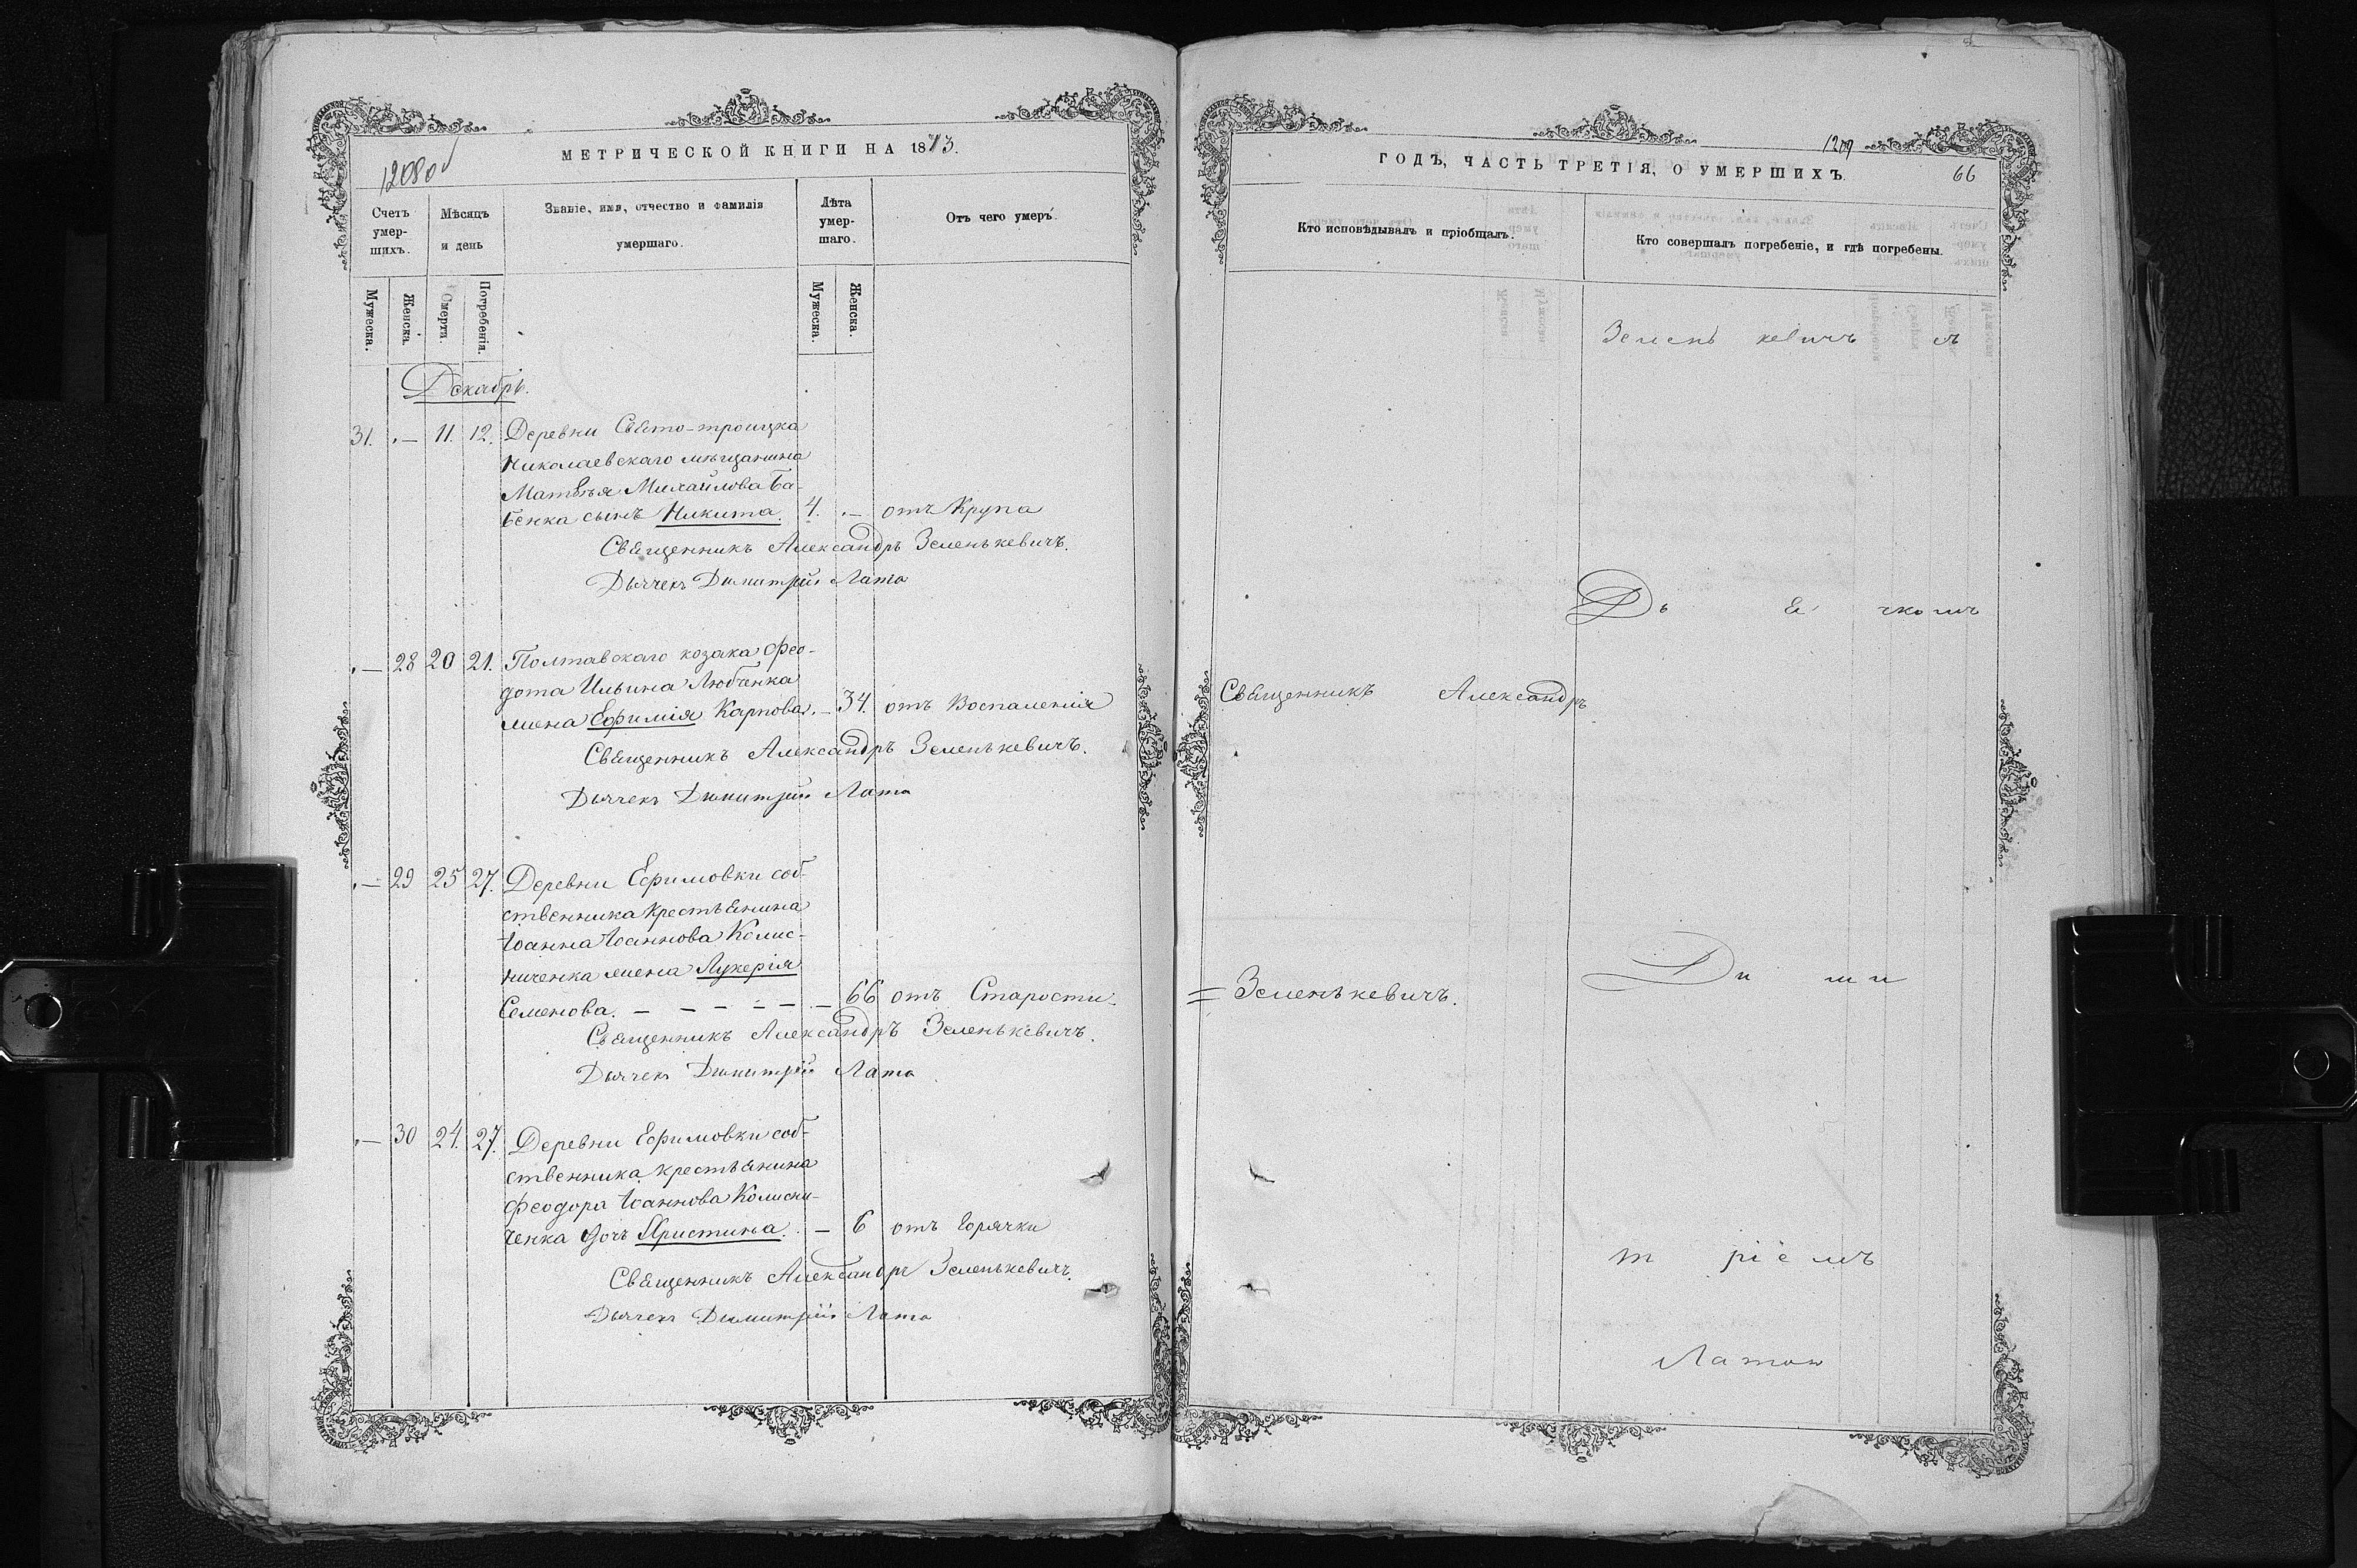 МЕТРИЧЕСКОЙ КНИГИ НА 1873.
Счетъ умер-шихъ.
Мѣсяцъ и день
Званіе, имя, отчество и фамилія умершаго.
Лѣта умер-шаго.
Отъ чего умеръ.
Мужеска.
Женска.
Смерти.
Погребенія.
Мужеска.
Женска.
Декабрь.
31. — 11. 12. Деревни Свято-троицка
Николаевскаго мѣщанина
Матвѣя Михайлова Ба-
бенка сынъ Никита. 4. — отъ Крупа
Священникъ Александръ Зеленькевичъ.
Дьячекъ Димитрій Лата
— 28 20 21. Полтавскаго козака Фео-
дота Ильина Любченка
жена Ефимія Карпова. — 34. отъ Воспаленія
Священникъ Александръ Зеленькевичъ.
Дьячекъ Димитрій Лата
— 29 25 27. Деревни Ефимовки соб-
ственника крестьянина
Іоанна Іоаннова Колис-
ниченка жена Лукерія
Семенова. — — — — — — 66 отъ Старости.
Священникъ Александръ Зеленькевичъ.
Дьячекъ Димитрій Лата
— 30 24. 27. Деревни Ефимовки соб-
ственника крестьянина
Феодора Іоаннова Колисни-
ченка дочь Христина. — 6 отъ Горячки
Священникъ Александръ Зеленькевичъ.
Дьячекъ Димитрій Лата
ГОДЪ, ЧАСТЬ ТРЕТІЯ, О УМЕРШИХЪ.
66
Кто исповѣдывалъ и пріобщалъ.
Кто совершалъ погребеніе, и гдѣ погребены.
Зелень кевичъ съ
Дь я чкомъ
Священникъ Александръ
= Зеленькевичъ.
Ди ми
т ріемъ
Латою